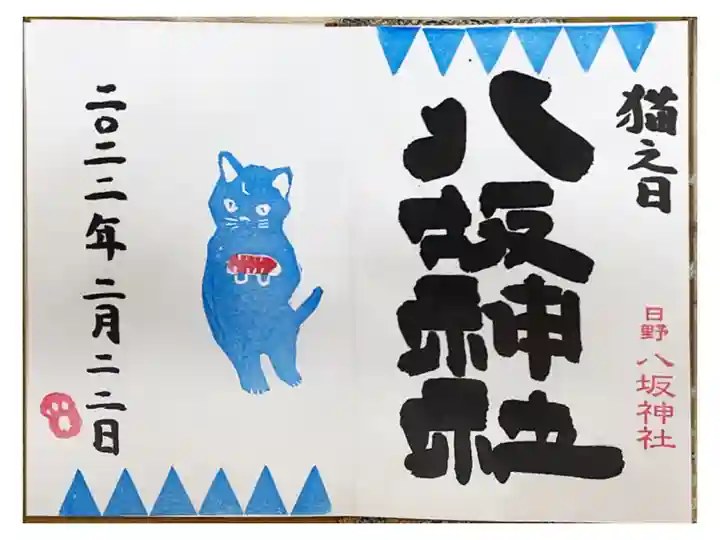 猫之日
日野
八坂神社
八坂神社
二〇二二年二月二二日